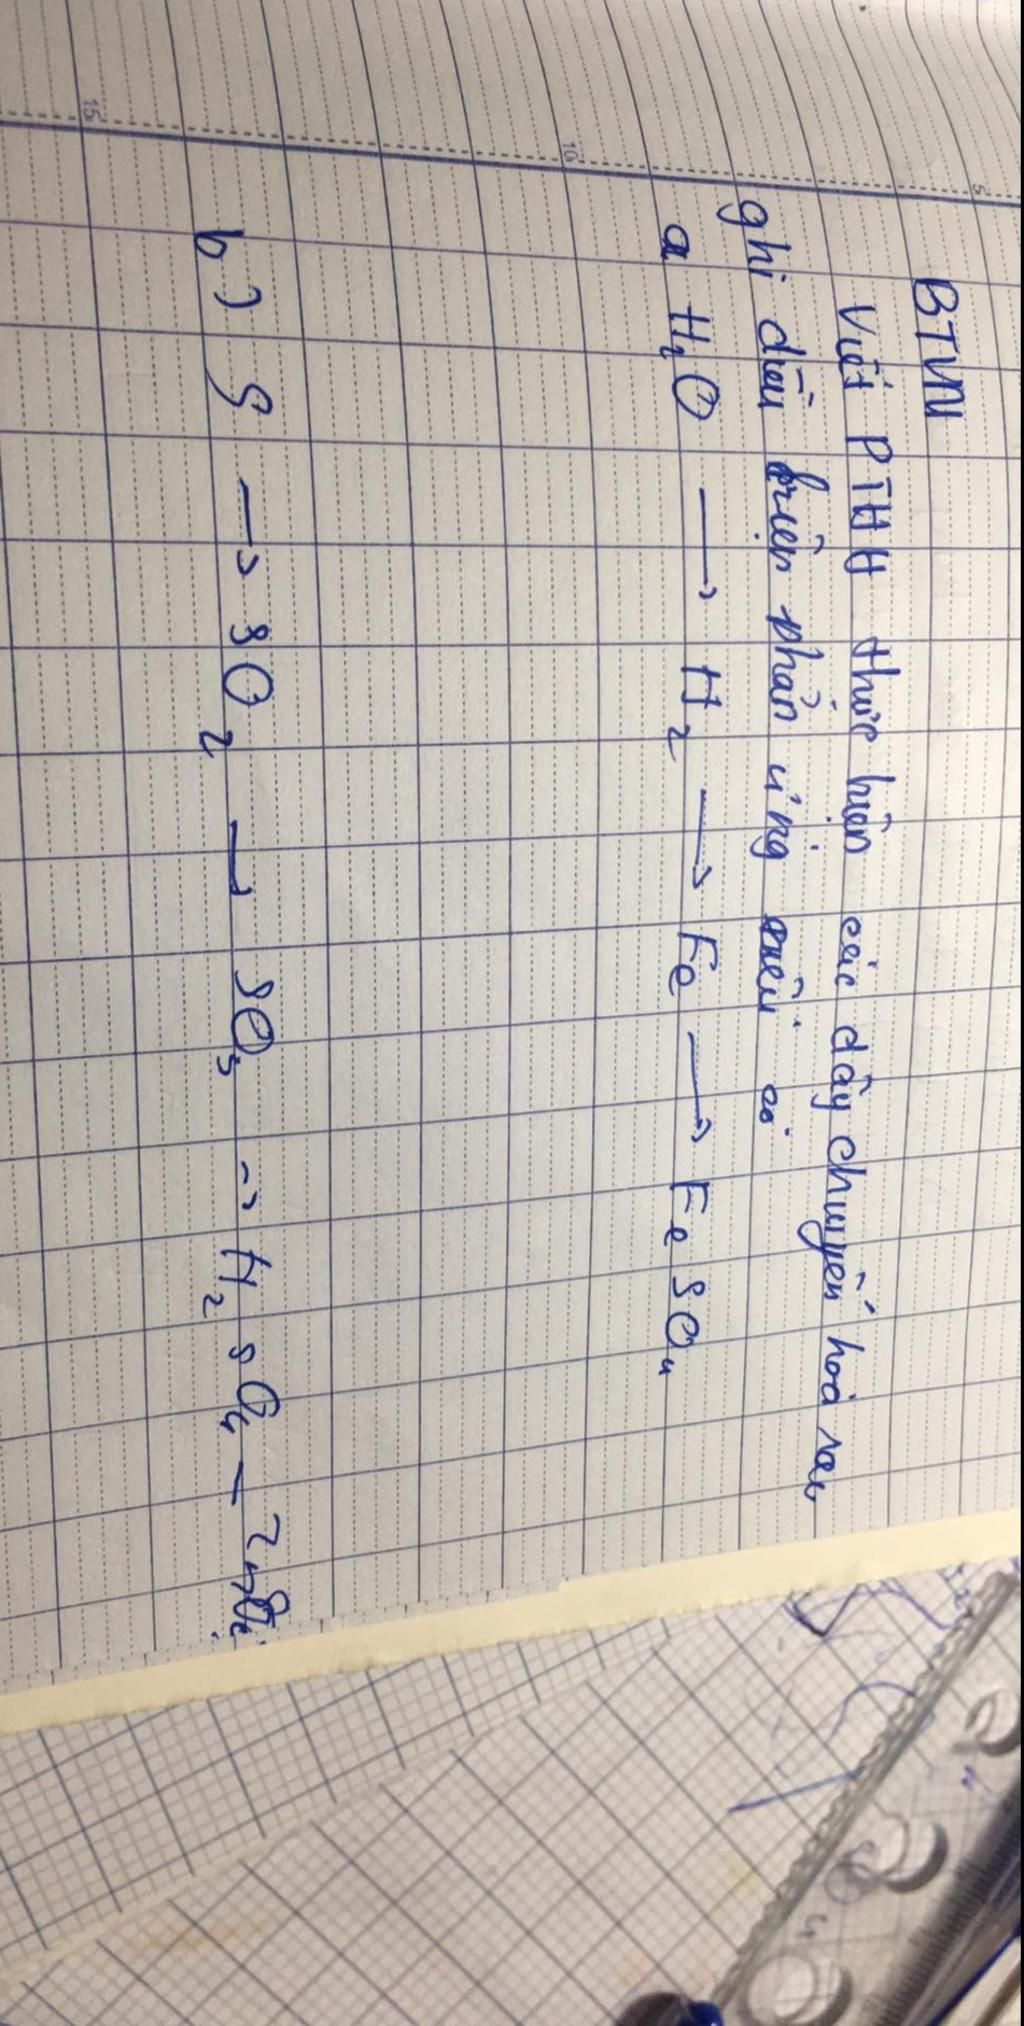 BTVN
Viết PTHH thực hiện các dãy chuyển hoá sau
ghi điều kiện phản ứng nếu có
a H₂O → H₂ → Fe → FeSO₄
b) S → SO₂ → SO₃ → H₂SO₄ - ZnSO₄
5
10
15